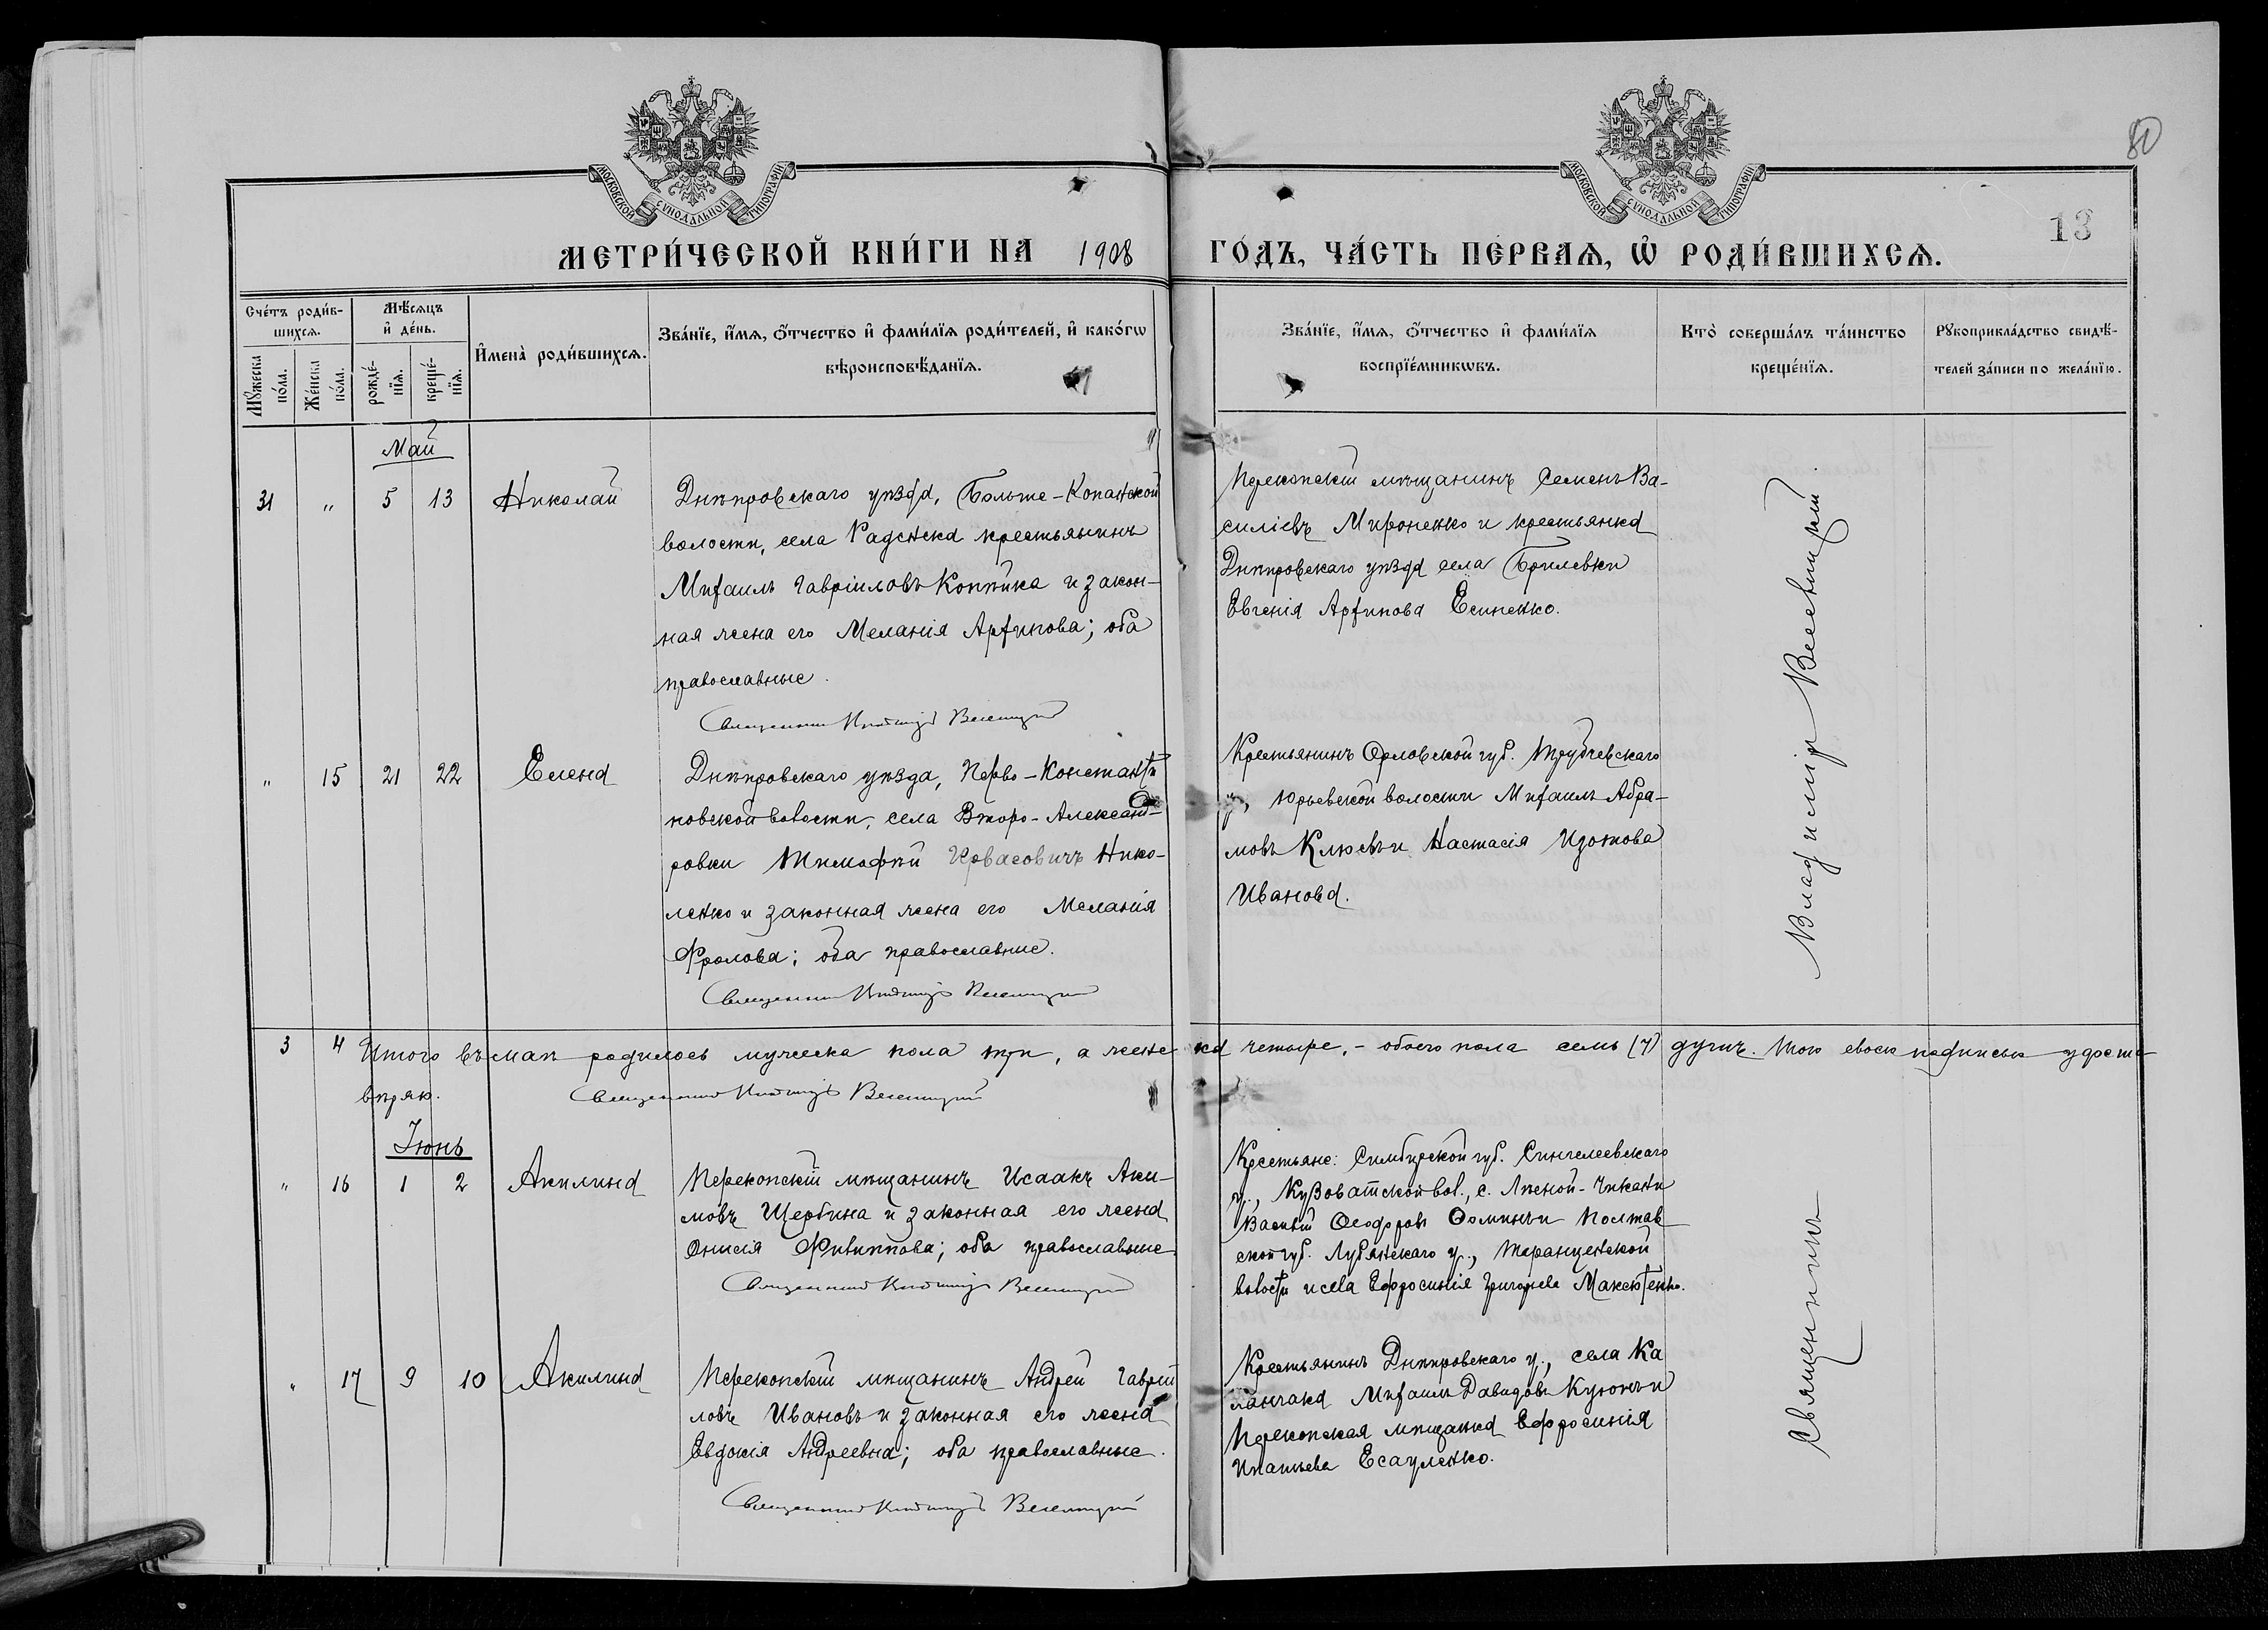 80
13
МОСКОВСКОЙ СѴНОДАЛЬНОЙ ТИПОГРАФІИ
МОСКОВСКОЙ СѴНОДАЛЬНОЙ ТИПОГРАФІИ
МЕТРИ́ЧЕСКОЙ КНИ́ГИ НА 1908 ГО́ДЪ, ЧА́СТЬ ПЕ́РВАѦ, Ѡ҆ РОДИ́ВШИХСѦ.
Сче́тъ роди́в-
шихсѧ.
Мꙋ́жеска по́ла.
Же́нска по́ла.
Мѣ́сѧцъ и҆ де́нь.
рожде́-нїѧ.
креще́-нїѧ.
И҆мена̀ роди́вшихсѧ.
Зва́нїе, и҆́мѧ, ѻ҆́тчество и҆ фами́лїѧ роди́телей, и҆ како́гѡ
вѣроисповѣ́данїѧ.
Зва́нїе, и҆́мѧ, ѻ҆́тчество и҆ фами́лїѧ
воспрїе́мникѡвъ.
Кто̀ соверша́лъ та́инство
креще́нїѧ.
Рꙋкоприкла́дство свидѣ́-
телей за́писи по жела́нїю.
Май
31 " 5 13 Николай
Днѣпровскаго уѣзда, Больше-Копанской
волости, села Раденска крестьянинъ
Михаилъ Гавріиловъ Коппика и закон-
ная жена его Меланія Архипова; оба
православные.
Священникъ Владиміръ Веселицкій
Перекопскій мѣщанинъ Семенъ Ва-
силіевъ Мироненко и крестьянка
Днѣпровскаго уѣзда села Брилевки
Евгенія Архипова Есиненко.
" 15 21 22 Елена
Днѣпровскаго уѣзда, Перво-Константи
новской волости, села Второ-Александ-
ровки Тимофѣй Нико-
ленко и законная жена его Меланія
Фролова; оба православные.
Священникъ Владиміръ Веселицкій
Крестьянинъ Орловской губ. Трубчевскаго
у., Юрьевской волости Михаилъ Абра-
мовъ Клюевъ и Настасія Изотова
Иванова.
3 4 Итого въ маѣ родилось мужеска пола три, а женска четыре, - обоего пола семь (7) душъ. Тою своею подписью удосто
вѣряю.
Священникъ Владиміръ Веселицкій
Іюнь
" 16 1 2 Акилина
Перекопскій мѣщанинъ Исаакъ Аки-
мовъ Щербина и законная его жена
Онисія Филиппова; оба православные
Священникъ Владиміръ Веселицкій
Крестьяне: Симбирской губ. Сингелеевскаго
у., вол., с.
Василій Ѳеодоровъ Ѳоминъ и Полтав
ской губ. Лубянскаго у., Тарандинской
волости и села Ефросинія Григорьева
" 17 9 10 Акилина
Перекопскій мѣщанинъ Андрей Гаврии
ловъ Ивановъ и законная его жена
Евдокія Андреевна; оба православные.
Священникъ Владиміръ Веселицкій
Крестьянинъ Днѣпровскаго у., села Ка
ланчака Михаилъ Давидовъ и
Перекопская мѣщанка Ефросинія
Игнатьева Есауленко.
Священникъ Владиміръ Веселицкій.